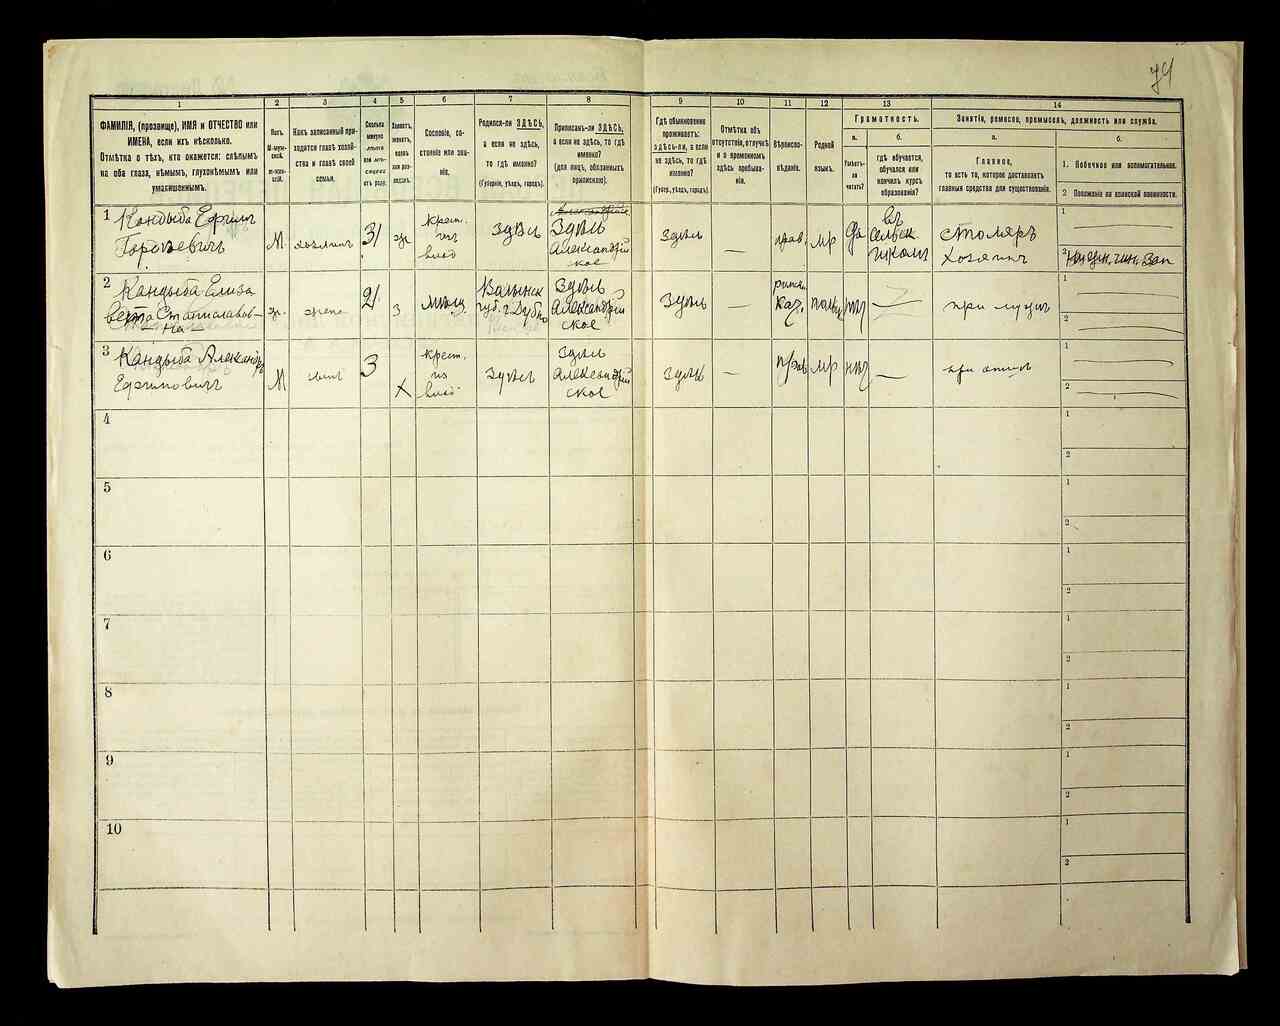 79
1 2 3 4 5 6 7 8 9 10 11 12 13 14
ФАМИЛІЯ, (прозвище), ИМЯ и ОТЧЕСТВО или
ИМЕНА, если ихъ нѣсколько.
Отмѣтка о тѣхъ, кто окажется: слѣпымъ
на оба глаза, нѣмымъ, глухонѣмымъ или
умалишеннымъ.
Полъ.
М-муж-
ской.
Ж-жен-
скій.
Какъ записанный при-
ходится главѣ хозяй-
ства и главѣ своей
семьи.
Сколько
минуло
лѣтъ
или мѣ-
сяцевъ
отъ роду.
Холостъ,
женатъ,
вдовъ
или раз-
веденъ.
Сословіе, со-
стояніе или зва-
ніе.
Родился-ли ЗДѢСЬ,
а если не здѣсь,
то гдѣ именно?
(Губернія, уѣздъ, городъ).
Приписанъ-ли ЗДѢСЬ,
а если не здѣсь, то гдѣ
именно?
(для лицъ, обязанныхъ
припискою).
Гдѣ обыкновенно
проживаетъ:
здѣсь-ли, а если
не здѣсь, то гдѣ
именно?
(Губерн., уѣздъ, городъ).
Отмѣтка объ
отсутствіи, отлучкѣ
и о временномъ
здѣсь пребыва-
ніи.
Вѣроиспо-
вѣданіе.
Родной
языкъ.
Грамотность.
а.
Умѣетъ-
ли
читать?
б.
гдѣ обучается,
обучался или
кончилъ курсъ
образованія?
Занятіе, ремесло, промыселъ, должность или служба.
а.
Главное,
то есть то, которое доставляетъ
главныя средства для существованія.
б.
1. Побочное или вспомогательное.
2 Положеніе по воинской повинности.
1 Кандыба Ефимъ
Горѣевичъ
М
хозяинъ
31
ж
крест.
изъ
влад
здѣсь
Здѣсь
Александрій
ское
Здѣсь
—
прав.
мр
да
въ
сельск.
школѣ
столяръ
хозяинъ
1
2
2 Кандыба Елиза
вета Станиславов-
на —
ж.
жена
21
з
мѣщ.
Волынск
губ. г. Дубно
Здѣсь
Александрій
ское
Здѣсь
—
римск.
кат.
нѣт
—
при мужѣ
1
2
3 Кандыба Александръ
Ефимовичъ
М
сынъ
3
Х
крест.
из
влад
Здѣсь
Здѣсь
Александрій
ское
Здѣсь
—
прав
мр
нѣт
—
при отцѣ
1
2
4
1
2
5
1
2
6
1
2
7
1
2
8
1
2
9
1
2
10
1
2